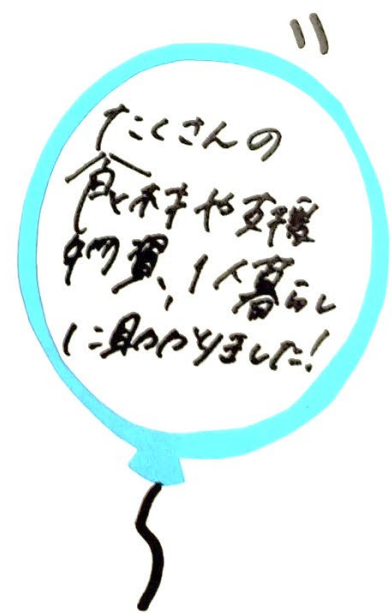 たくさんの
食材や支援
物資、1人暮らし
に助かりました!